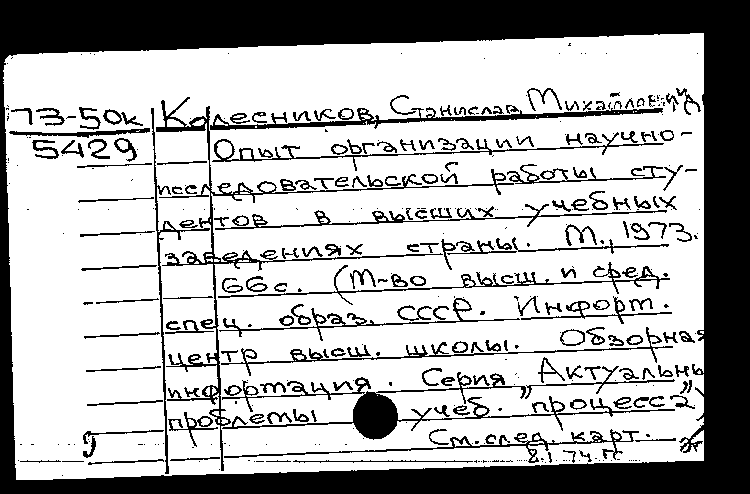 73-50к Колесников, Станислав Михайлович
5429 Опыт организации научно-
исследовательской работы сту-
дентов в высших учебных
заведениях страны. М., 1973.
66 с. (М-во высш. и сред.
спец. образ. СССР. Информ.
центр высш. школы. Обзорная
информация. Серия Актуальны
проблемы учеб. "процесса")
См. след. карт.
8.I 74